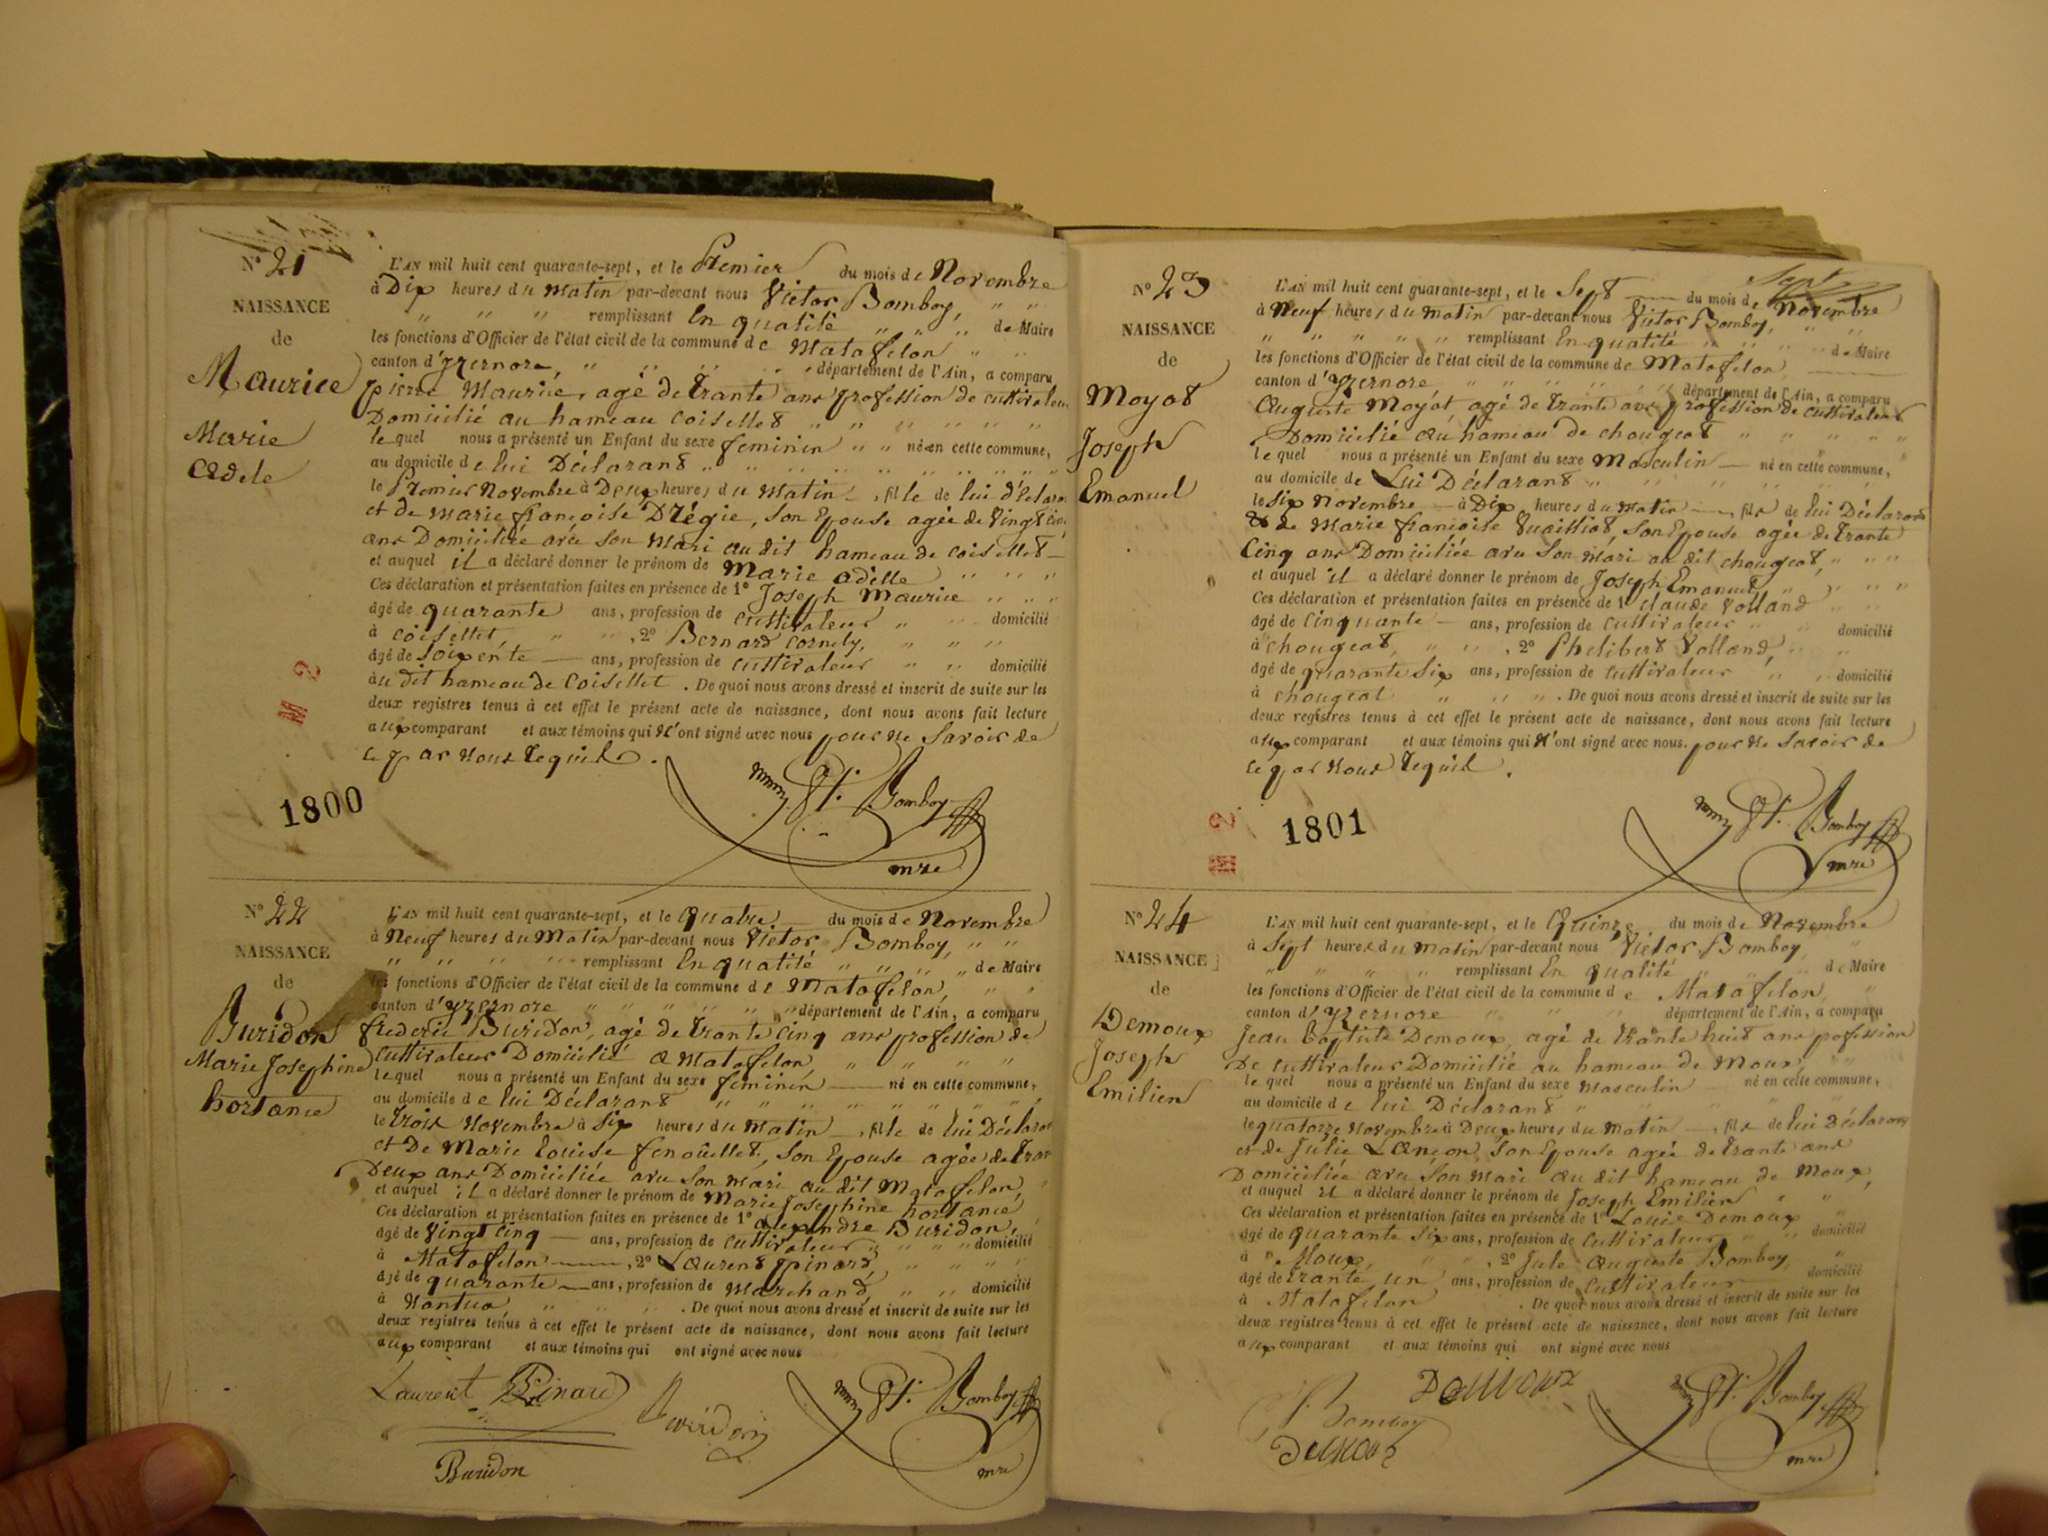 N° 21
NAISSANCE
de
Maurice
Marie
Adele
L'AN mil huit cent quarante-sept, et le Premier du mois de Novembre
à Dix heures du matin par-devant nous Victor Bomboy, " "
" " " remplissant En qualité " " " de Maire
les fonctions d'Officier de l'état civil de la commune de Matafelon " "
canton d'yzernore, " " " " département de l'Ain, a comparu
pierre Maurice, agé de trante ans profession de cultivateur
Domicilié au hameau coisellet " " " " "
lequel nous a présenté un Enfant du sexe feminin " " né en cette commune,
au domicile de lui Déclarant " " " " " " "
le Premier Novembre à Deux heures du matin, fille de lui déclarant
et de marie françoise Drégie, son Epouse agée de Vingt cinq
ans Domiciliée avec son Mari au dit hameau de coisellet
et auquel il a déclaré donner le prénom de Marie adélle " " "
Ces déclaration et présentation faites en présence de 1° Joseph Maurice " " "
âgé de quarante ans, profession de cultivateur " " domicilié
à coisellet, " " , 2° Bernard Cornely, " " "
âgé de soixente ans, profession de cultivateur " " domicilié
au dit hameau de Coisellet . De quoi nous avons dressé et inscrit de suite sur les
deux registres tenus à cet effet le présent acte de naissance, dont nous avons fait lecture
aux comparant et aux témoins qui N'ont signé avec nous pour ne Savoir de
ce par nous requit .
M 2
1800
Vt. Bomboy
mre
N° 22
NAISSANCE
de
Buridon
Marie Josephine
hortance
L'AN mil huit cent quarante-sept, et le quatre du mois de Novembre
à Neuf heures du Matin par-devant nous Victor Bomboy, " "
" " " " remplissant En qualité " " " de Maire
les fonctions d'Officier de l'état civil de la commune de Matafelon, " "
canton d'yzernore " " " " " département de l'Ain, a comparu
frederic Buridon, agé de trante cinq ans profession de
cultivateur Domicilié a Matafelon, " " " "
lequel nous a présenté un Enfant du sexe feminin né en cette commune,
au domicile de lui Déclarant " " " " " " "
le trois Novembre à Six heures du matin, fille de lui Déclarant
et De Marie Louise fenouillet, son Epouse agée de
Deux ans Domiciliée avec son mari au dit Matafelon,
et auquel il a déclaré donner le prénom de Marie Josephine hortance
Ces déclaration et présentation faites en présence de 1° alexandre Buridon,
âgé de vingt cinq ans, profession de cultivateur " " " domicilié
à Matafelon , 2° Laurent pinard, " " " "
âgé de quarante ans, profession de Marchand, " " domicilié
à Nantua, " " " . De quoi nous avons dressé et inscrit de suite sur les
deux registres tenus à cet effet le présent acte de naissance, dont nous avons fait lecture
aux comparant et aux témoins qui ont signé avec nous
Laurent Pinard Buridon Vt. Bomboy
Buridon mre
N° 23
NAISSANCE
de
Moyat
Joseph
Emanuel
Sept
L'AN mil huit cent quarante-sept, et le Sept du mois de Novembre
à Neuf heures du matin par-devant nous Victor Bomboy, " "
" " " " " remplissant En qualité " " " " de Maire
les fonctions d'Officier de l'état civil de la commune de Matafelon,
canton d'yzernore " " " " " département de l'Ain, a comparu
Auguste Moyat agé de trante ans profession de cultivateur
Domicilié au hameau de chougeat " " " " "
lequel nous a présenté un Enfant du sexe Masculin né en cette commune,
au domicile de Lui Déclarant " " " " " "
le six Novembre à Dix heures du Matin, fils de lui Déclarant
& de Marie françoise, son Epouse agée de trante
Cinq ans Domiciliée avec son mari au dit chougeat, " " "
et auquel il a déclaré donner le prénom de Joseph Emanuel " " "
Ces déclaration et présentation faites en présence de 1° claude Volland " "
âgé de cinquante ans, profession de cultivateur " " domicilié
à chougeat, " " , 2° Phelibert Volland, " "
âgé de quarante six ans, profession de cultivateur " " domicilié
à chougeat " " " . De quoi nous avons dressé et inscrit de suite sur les
deux registres tenus à cet effet le présent acte de naissance, dont nous avons fait lecture
aux comparant et aux témoins qui N'ont signé avec nous. pour ne savoir de
ce par nous requit .
M 2
1801
Vt. Bomboy
mre
N° 24
NAISSANCE
de
Demoux
Joseph
Emilien
L'AN mil huit cent quarante-sept, et le Quinze du mois de Novembre
à Sept heures du matin par-devant nous Victor Bomboy, "
" " " " remplissant En qualité " " " de Maire
les fonctions d'Officier de l'état civil de la commune de Matafelon, "
canton d'yzernore " " " département de l'Ain, a comparu
Jean Baptiste Demoux, agé de trante huit ans profession
De cultivateur Domicilié au hameau de Moux, " "
lequel nous a présenté un Enfant du sexe masculin né en cette commune,
au domicile de lui Déclarant " " " "
le quatorze Novembre à Deux heures du Matin, fils de lui déclarant
et de Julie Lançon, son Epouse agée de trante ans
Domiciliée avec son mari au dit hameau de Moux,
et auquel il a déclaré donner le prénom de Joseph Emilien " "
Ces déclaration et présentation faites en présence de 1° Louis Demoux "
âgé de quarante six ans, profession de cultivateur " " domicilié
à Moux, " " , 2° Jule Auguste Bomboy, "
âgé de trante un ans, profession de cultivateur domicilié
à Matafelon . De quoi nous avons dressé et inscrit de suite sur les
deux registres tenus à cet effet le présent acte de naissance, dont nous avons fait lecture
aux comparant et aux témoins qui ont signé avec nous
Demoux Vt. Bomboy
Bomboy
Demoux mre